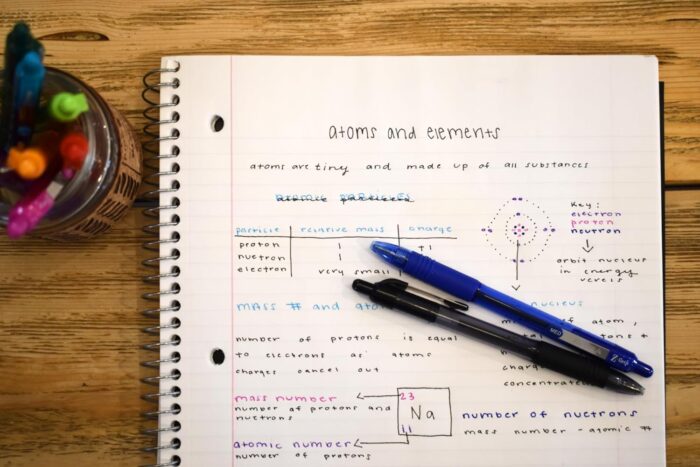 atoms and elements
atoms are tiny and made up of all substances
atomic particles
particle relative mass charge
proton 1 +1
nuetron 1
electron very small
Key:
electron
proton
neutron
orbit nucleus
in energy
levels
mass # and
number of protons is equal
to electrons as atoms
charges cancel out
nucleus
of atom,
mass number
number of protons and
nuetrons
atomic number
number of protons
23
Na
11
number of nuetrons
mass number - atomic #